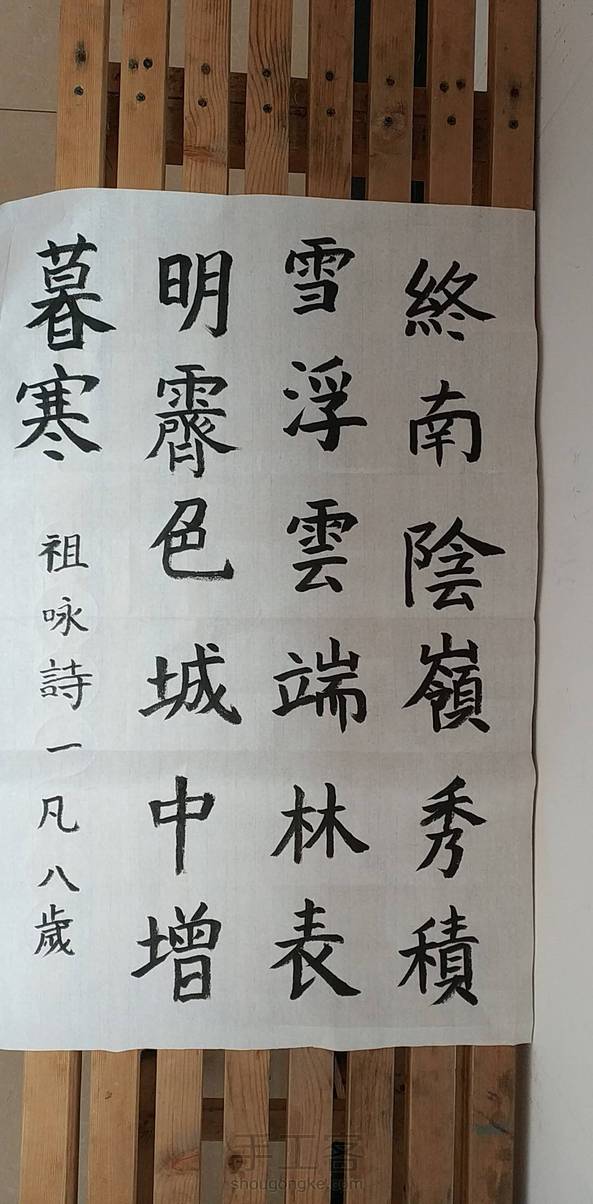 終南陰嶺秀積
雪浮雲端林表
明霽色城中增
暮寒
祖咏詩一凡八歲
手工客
shougongke.com